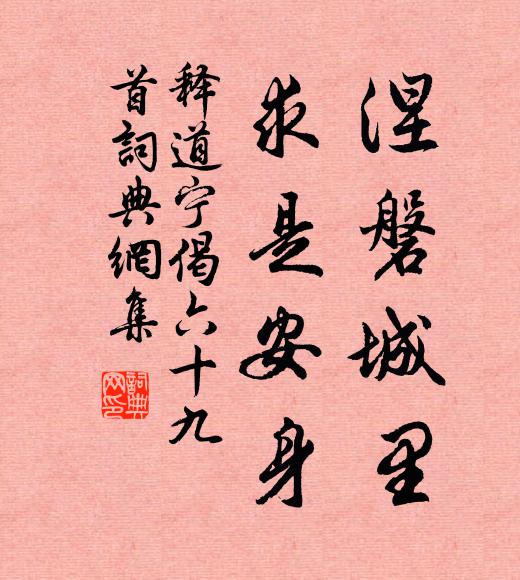 涅磐城里
求是安身
释道宁偈六十九
首詞典網集
詞典
网印